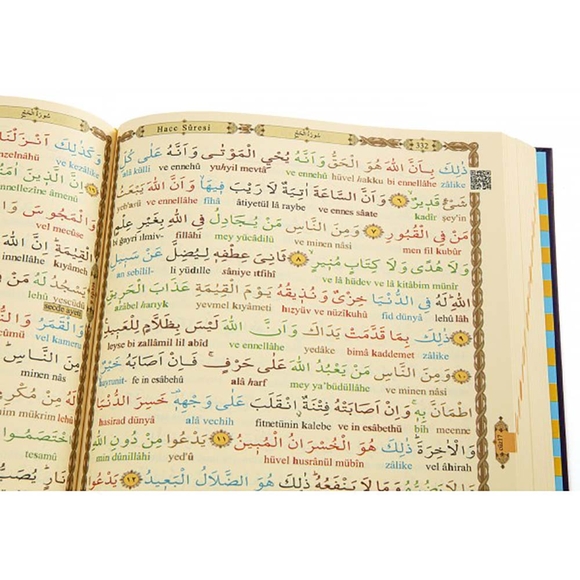 Hacc Sûresi سُورَةُ الْحَجِّ 332
ذٰلِكَ بِاَنَّ اللّٰهَ هُوَ الْحَقُّ وَاَنَّهُ يُحْيِ الْمَوْتٰى وَاَنَّهُ عَلٰى كُلِّ
alâ külli ve ennehû yuhyil mevtâ ve ennehû hüvel hakku bi ennellâhe zâlike
شَيْءٍ قَدِيرٌ ٦ وَاَنَّ السَّاعَةَ اٰتِيَةٌ لَا رَيْبَ فِيهَا وَاَنَّ اللّٰهَ يَبْعَثُ
yeb'asü ve ennellâhe fîhâ âtiyetül lâ raybe ve ennes sâate kadîr şey'in
مَنْ فِي الْقُبُورِ ٧ وَمِنَ النَّاسِ مَنْ يُجَادِلُ فِي اللّٰهِ بِغَيْرِ عِلْمٍ
bi ğayri ılmiv- fillâhi mey yücâdilü ve minen nâsi men fil kubûr
وَلَا هُدًى وَلَا كِتَابٍ مُنِيرٍ ٨ ثَانِيَ عِطْفِهِ لِيُضِلَّ عَنْ سَبِيلِ
an sebîlil- li yüdılle sâniye ıtfihî ve lâ hüdev ve lâ kitâbim münîr
اللّٰهِ لَهُ فِي الدُّنْيَا خِزْيٌ وَنُذِيقُهُ يَوْمَ الْقِيٰمَةِ عَذَابَ الْحَرِيقِ
azâbel harıyk yevmel kıyâmeti hızyüv ve nüzîkuhû fid dünyâ lehû lâh
٩ ذٰلِكَ بِمَا قَدَّمَتْ يَدَاكَ وَاَنَّ اللّٰهَ لَيْسَ بِظَلَّامٍ لِلْعَبِيدِ
leyse bi zallâmil lil abîd ve ennellâhe yedâke bimâ kaddemet zâlike
١٠ وَمِنَ النَّاسِ مَنْ يَعْبُدُ اللّٰهَ عَلٰى حَرْفٍ فَاِنْ اَصَابَهُ خَيْرٌ
hayrunit- fe in esâbehû alâ harf mey ya'büdüllâhe ve minen nâsi
اطْمَاَنَّ بِهِ وَاِنْ اَصَابَتْهُ فِتْنَةٌ انْقَلَبَ عَلٰى وَجْهِهِ خَسِرَ الدُّنْيَا
hasirad dünyâ alâ vechih fitnetünin kalebe ve in esâbethü bih meenne
وَالْاٰخِرَةَ ذٰلِكَ هُوَ الْخُسْرَانُ الْمُبِينُ ١١ يَدْعُوا مِنْ دُونِ اللّٰهِ
min dûnillâhi yed'û hüvel husrânül mübîn zâlike vel âhirah
مَا لَا يَضُرُّهُ وَمَا لَا يَنْفَعُهُ ذٰلِكَ هُوَ الضَّلَالُ الْبَعِيدُ ١٢ يَدْعُوا
cüz:17
سُورَةُ الْحَجِّ
وَكَذٰلِكَ اَنْزَلْنَا
ve kezâlike
اِنَّ الَّذِينَ اٰمَنُوا
ennellezîne âmenû
وَالْمَجُوسَ
vel mecûse
الْقِيٰمَةِ اِنَّ اللّٰهَ
innellâhe kıyâmeh
يَسْجُدُ لَهُ
lehû yescüdü
secde ayeti
وَالْقَمَرُ
vel kameru
مِنَ النَّاسِ
minen nâs
him mükrim lehû
اخْتَصَمُوا
tesamû
نَارٍ يُصَبُّ